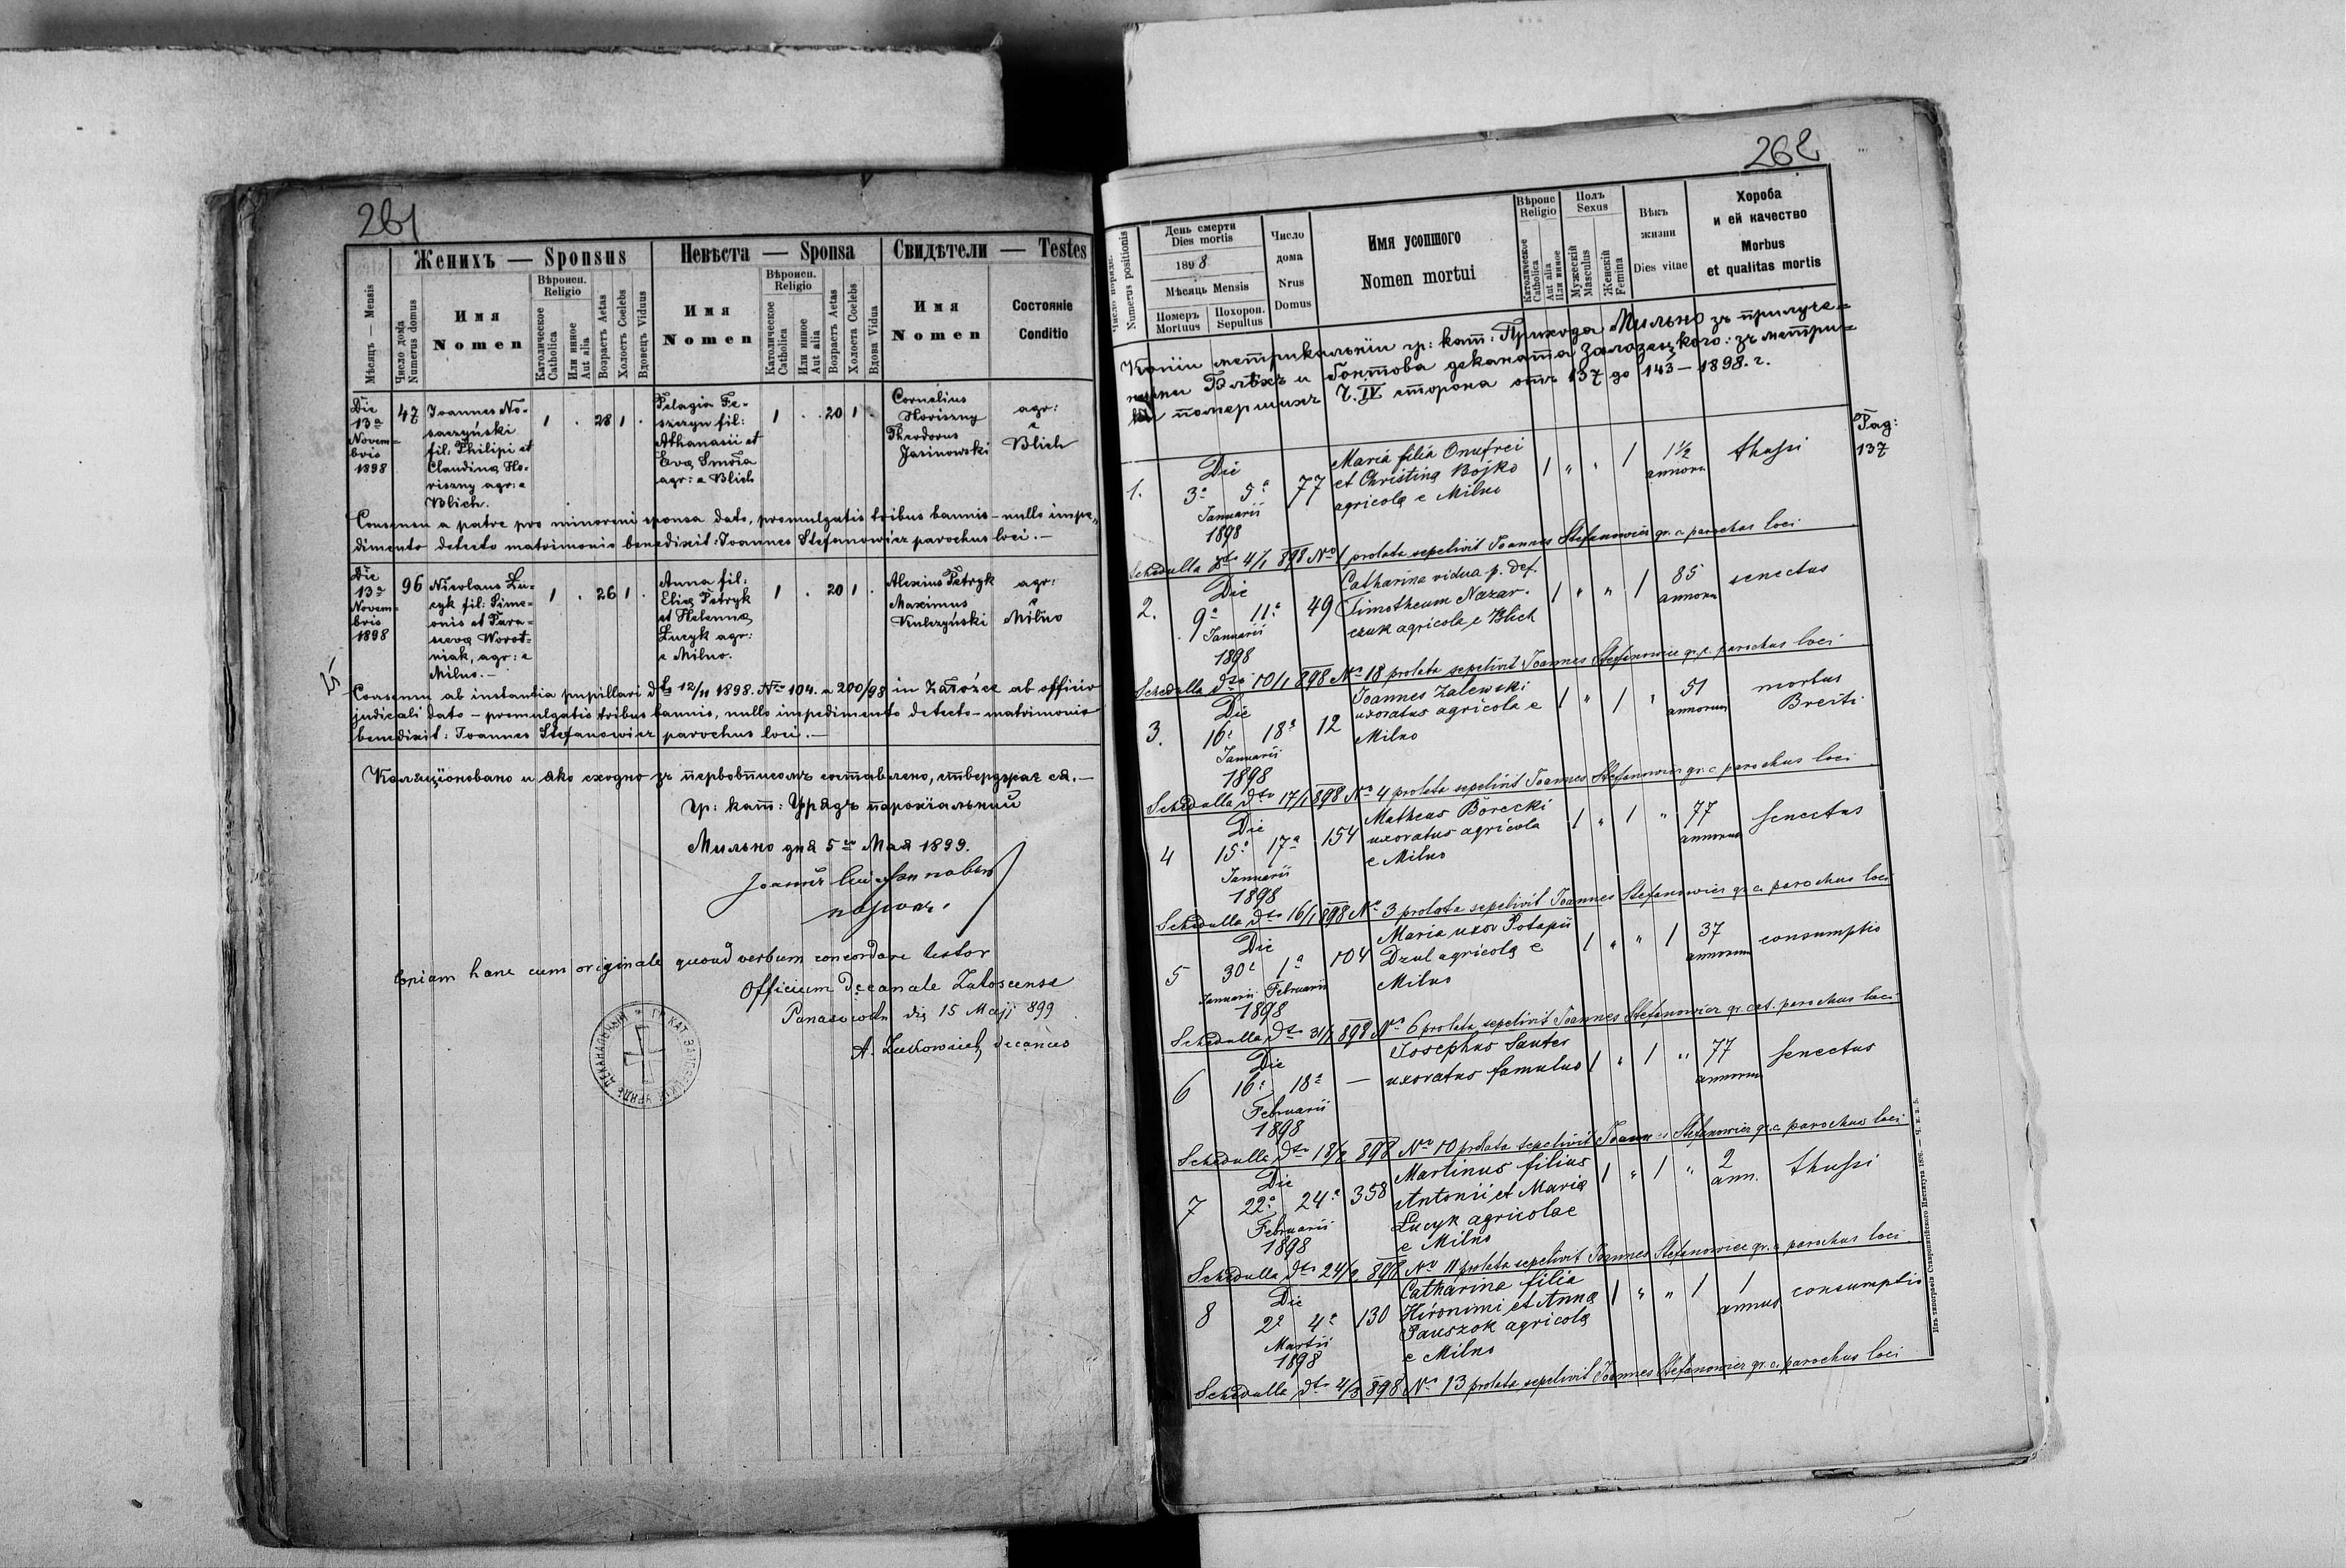 261
Женихъ — Sponsus
Невѣста — Sponsa
Свидѣтели — Testes
Мѣсяцъ — Mensis
Число дома
Numerus domus
Имя
Nomen
Вѣроисп.
Religio
Католическое
Catholica
Или инное
Aut alia
Возрастъ Aetas
Холостъ Coelebs
Вдовецъ Viduus
Имя
Nomen
Вѣроисп.
Religio
Католическое
Catholica
Или инное
Aut alia
Возрастъ Aetas
Холоста Coelebs
Вдова Vidua
Имя
Nomen
Состоянiе
Conditio
Die
13a
Novem=
bris
1898
47
Joannes No-
saczyński
fil: Philipi et
Claudina Ho-
riszny agr: e
Blich.
1 . 28 1 .
Pelagia Fe-
szczyn fil:
Athanasii et
Eva Smola
agr: e Blich
1 . . 20 1 .
Cornelius
Horiszny
Theodorus
Jasinowski
agr:
e
Blich
Consensu a patre pro minoreni sponsa dato, promulgatis tribus bannis - nullo impe=
dimento detecto matrimonio benedixit: Joannes Stefanowicz parochus loci. -
Die
13a
Novem=
bris
1898
96
Nicolaus Łu-
cyk fil: Sime-
onis et Para-
sceva Worot-
niak, agr: e
Milno. -
1 . 26 1 .
Anna fil:
Elia Petryk
et Helenna
Łucyk agr:
e Milno.
1 . 20 1 .
Alexius Petryk
Maximus
Kulczyński
agr:
e
Milno
Consensu ab instantia pupillari dto 12/11 1898. Nro 104. a 200/98 in Załoźce ab officio
judicali dato - promulgatis tribus bannis, nullo impedimento detecto - matrimonio
benedixit: Joannes Stefanowicz parochus loci. -
Колляціоновано и яко сходно зъ первовписомъ составлено, ствердржае ся. -
Гр: кат: Урядъ парохіальный
Мильно дня 5го Мая 1899.
Copiam hanc cum originale quoad verbum concordare testor
Officium Decanale Załoscense
Panasówka die 15 Maji 899
decanus
262
Число порядк.
Numerus positionis
День смерти
Dies mortis
1898
Мѣсяць Mensis
Померъ
Mortuus
Похорон.
Sepultus
Число
дома
Nrus
Domus
Имя усопшого
Nomen mortui
Вѣроис
Religio
Католическое
Catholica
Aut alia
Или иное
Полъ
Sexus
Мужескiй
Masculus
Женскiй
Femina
Вѣкъ
жизни
Dies vitae
Хороба
и ей качество
Morbus
et qualitas mortis
Копіи метрикальніи гр: кат: Прихода Мильно зъ прилуче=
ньми Блѣхъ и Гонтова деканата Залозецкого: зъ метри=
ки помершихъ Ч. IV сторона отъ 137 до 143 - 1898. г.
Pag:
137
1.
Die
3a 5a
Januarii
1898
77
Maria filia Onufrei
et Christina Bojko
agricola e Milno
1 " . 1
1½
annorum
thussi
Schedulla dto 4/1 898 No 1 prolata sepelivit Joannes Stefanowicz gr. c. parochus loci
2.
Die
9a 11a
Januarii
1898
49
Catharina vidua p. def.
Timotheum Nazar-
czuk agricola e Blich
1 " " 1
85
annorum
senectus
Schedulla dto 10/1 898 No 18 prolata sepelivit Joannes Stefanowicz gr. c. parochus loci
3.
Die
16a 18a
Januarii
1898
12
Joannes Zalewski
uxoratus agricola e
Milno
1 " 1 "
51
annorum
morbus
Breiti
Schedulla dto 17/1 898 No 4 prolata sepelivit Joannes Stefanowicz gr. c. parochus loci
4
Die
15a 17a
Januarii
1898
154
Matheus Borecki
uxoratus agricola
e Milno
1 " 1 "
77
annorum
senectus
Schedulla dto 16/1 898 No 3 prolata sepelivit Joannes Stefanowicz gr. c. parochus loci
5
Die
30a 1a
Januarii Februarii
1898
104
Maria uxor Potapii
Dzul agricola e
Milno
1 " " 1
37
annorum
consumptio
Schedulla dto 31/1 898 No 6 prolata sepelivit Joannes Stefanowicz gr. cat. parochus loci
6
Die
16a 18a
Februarii
1898
—
Josephus Sauter
uxoratus famulus
1 " 1 "
77
annorum
senectus
Schedulla dto 18/2 898 No 10 prolata sepelivit Joannes Stefanowicz gr. c. parochus loci
7
Die
22a 24a
Februarii
1898
358
Martinus filius
Antonii et Maria
Łucyk agricolae
e Milno
1 " 1 "
2
ann.
thussi
Schedulla dto 24/2 898 No 11 prolata sepelivit Joannes Stefanowicz gr. c. parochus loci
8
Die
2a 4a
Martii
1898
130
Catharina filia
Hironimi et Anna
Pauszok agricola
e Milno
1 " " 1
1
annus
consumptio
Schedulla dto 4/3 898 No 13 prolata sepelivit Joannes Stefanowicz gr. c. parochus loci
Изъ типографiи Ставропигiйского Института 1896.